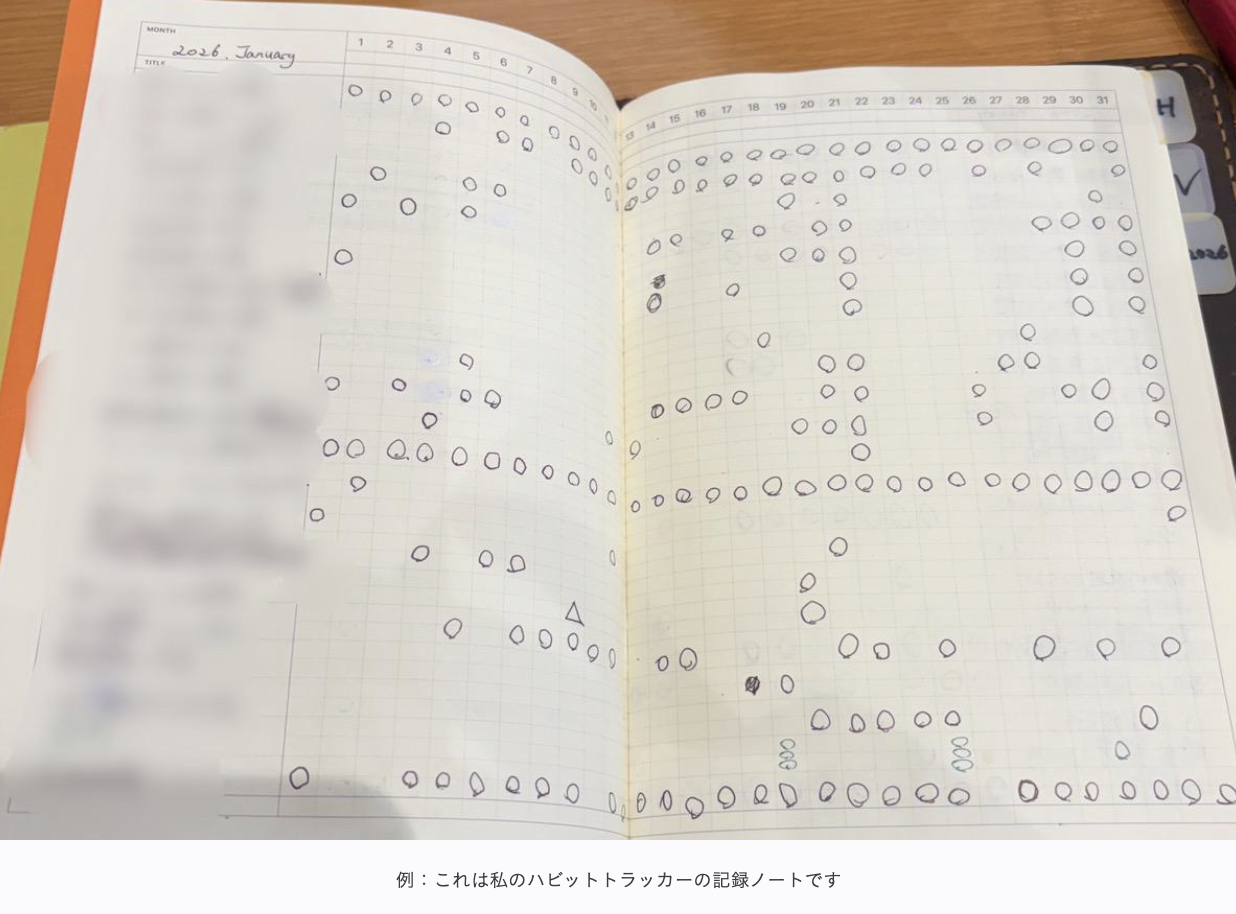 MONTH
2026. January
TITLE
1 2 3 4 5 6 7 8 9 10
13 14 15 16 17 18 19 20 21 22 23 24 25 26 27 28 29 30 31
H
V
2026
例：これは私のハビットトラッカーの記録ノートです